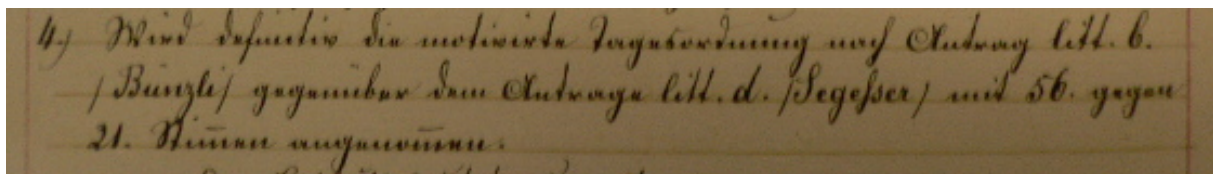 4.) Wird definitiv die motivirte Tagesordnung nach Antrag litt. b.
/Bünzli/ gegenüber dem Antrage litt. d. /Segesser/ mit 56. gegen
21. Stim̅en angenom̅en.